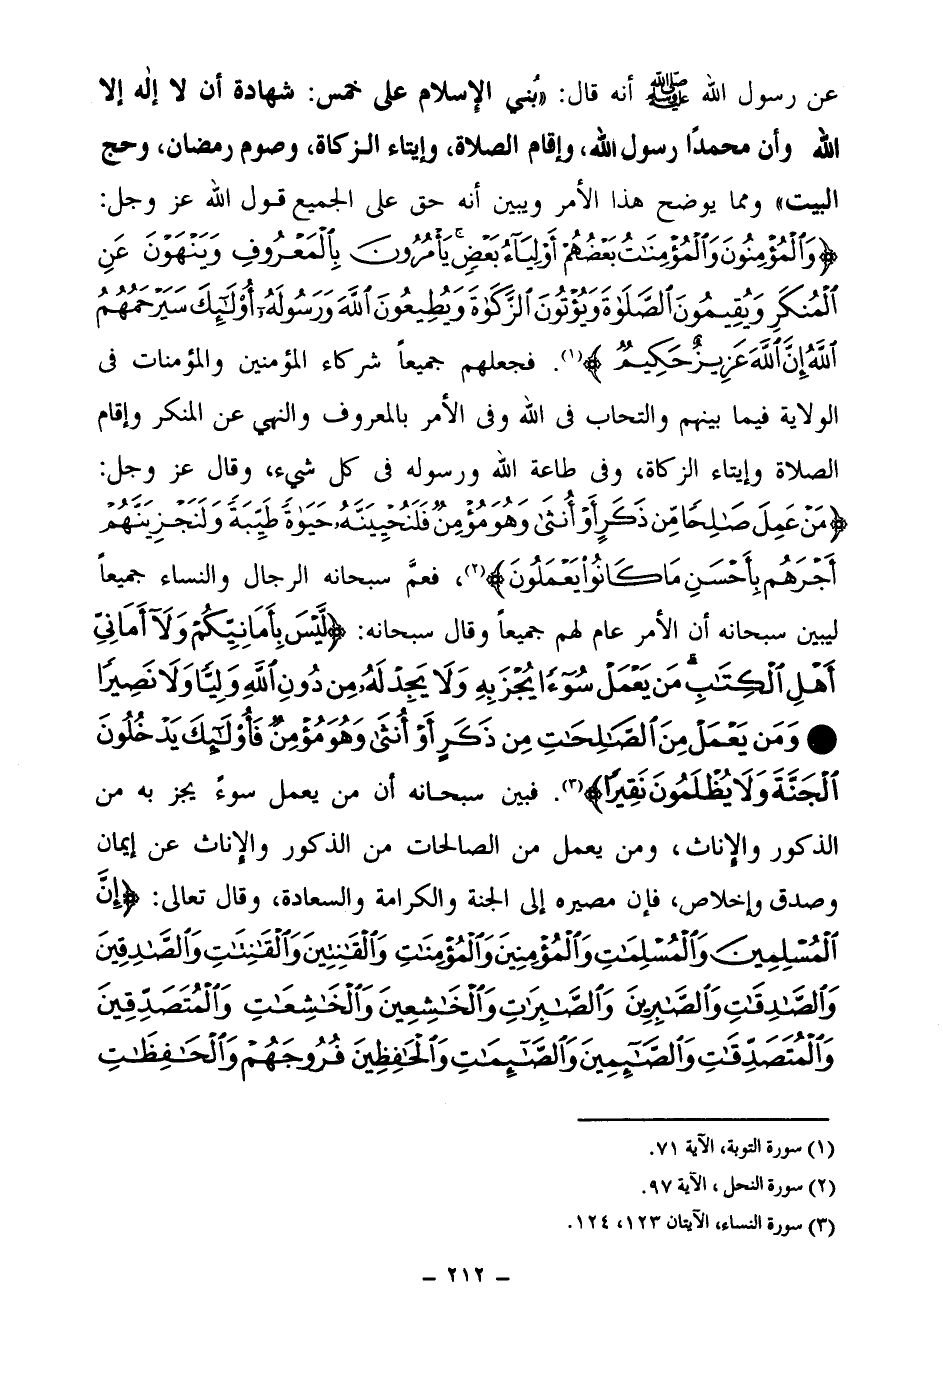 عن رسول الله ﷺ أنه قال: «بُني الإسلام على خمس: شهادة أن لا إلٰه إلا
الله وأن محمدًا رسول الله، وإقام الصلاة، وإيتاء الـزكاة، وصوم رمضان، وحج
البيت» ومما يوضح هذا الأمر ويبين أنه حق على الجميع قول الله عز وجل:
﴿وَٱلْمُؤْمِنُونَ وَٱلْمُؤْمِنَـٰتُ بَعْضُهُمْ أَوْلِيَآءُ بَعْضٍ ۚ يَأْمُرُونَ بِٱلْمَعْرُوفِ وَيَنْهَوْنَ عَنِ
ٱلْمُنكَرِ وَيُقِيمُونَ ٱلصَّلَوٰةَ وَيُؤْتُونَ ٱلزَّكَوٰةَ وَيُطِيعُونَ ٱللَّهَ وَرَسُولَهُۥٓ أُوْلَـٰٓئِكَ سَيَرْحَمُهُمُ
ٱللَّهُ إِنَّ ٱللَّهَ عَزِيزٌ حَكِيمٌ﴾(١). فجعلهم جميعاً شركاء المؤمنين والمؤمنات فى
الولاية فيما بينهم والتحاب فى الله وفى الأمر بالمعروف والنهي عن المنكر وإقام
الصلاة وإيتاء الزكاة، وفى طاعة الله ورسوله فى كل شيء، وقال عز وجل:
﴿مَنْ عَمِلَ صَـٰلِحًا مِّن ذَكَرٍ أَوْ أُنثَىٰ وَهُوَ مُؤْمِنٌ فَلَنُحْيِيَنَّهُۥ حَيَوٰةً طَيِّبَةً وَلَنَجْزِيَنَّهُمْ
أَجْرَهُم بِأَحْسَنِ مَا كَانُوا۟ يَعْمَلُونَ﴾(٢)، فعمَّ سبحانه الرجال والنساء جميعاً
ليبين سبحانه أن الأمر عام لهم جميعاً وقال سبحانه: ﴿لَّيْسَ بِأَمَانِيِّكُمْ وَلَآ أَمَانِيِّ
أَهْلِ ٱلْكِتَـٰبِ ۗ مَن يَعْمَلْ سُوٓءًا يُجْزَ بِهِ وَلَا يَجِدْ لَهُۥ مِن دُونِ ٱللَّهِ وَلِيًّا وَلَا نَصِيرًا
● وَمَن يَعْمَلْ مِنَ ٱلصَّـٰلِحَـٰتِ مِن ذَكَرٍ أَوْ أُنثَىٰ وَهُوَ مُؤْمِنٌ فَأُوْلَـٰٓئِكَ يَدْخُلُونَ
ٱلْجَنَّةَ وَلَا يُظْلَمُونَ نَقِيرًا﴾(٣). فبين سبحـانه أن من يعمل سوءً يجز به من
الذكور والإناث، ومن يعمل من الصالحات من الذكور والإناث عن إيمان
وصدق وإخلاص، فإن مصيره إلى الجنة والكرامة والسعادة، وقال تعالى: ﴿إِنَّ
ٱلْمُسْلِمِينَ وَٱلْمُسْلِمَـٰتِ وَٱلْمُؤْمِنِينَ وَٱلْمُؤْمِنَـٰتِ وَٱلْقَـٰنِتِينَ وَٱلْقَـٰنِتَـٰتِ وَٱلصَّـٰدِقِينَ
وَٱلصَّـٰدِقَـٰتِ وَٱلصَّـٰبِرِينَ وَٱلصَّـٰبِرَٰتِ وَٱلْخَـٰشِعِينَ وَٱلْخَـٰشِعَـٰتِ وَٱلْمُتَصَدِّقِينَ
وَٱلْمُتَصَدِّقَـٰتِ وَٱلصَّـٰٓئِمِينَ وَٱلصَّـٰٓئِمَـٰتِ وَٱلْحَـٰفِظِينَ فُرُوجَهُمْ وَٱلْحَـٰفِظَـٰتِ
(١) سورة التوبة، الآية ٧١.
(٢) سورة النحل، الآية ٩٧.
(٣) سورة النساء، الآيتان ١٢٣، ١٢٤.
– ٢١٢ –